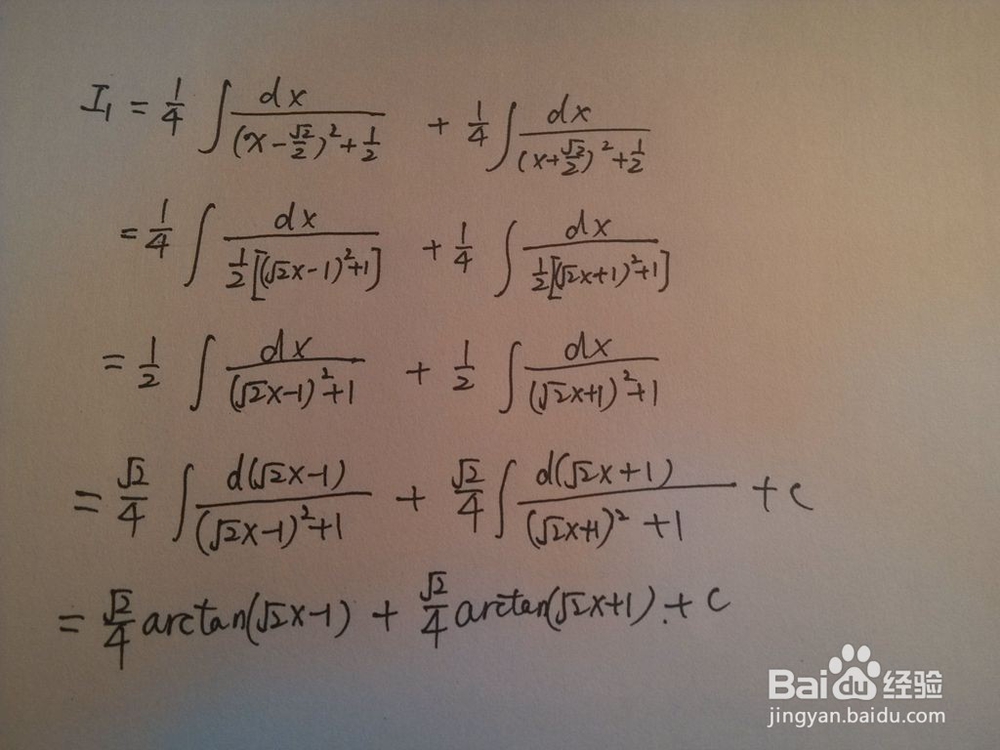 I₁ = 1/4 ∫ dx/((x-√2/2)²+1/2) + 1/4 ∫ dx/((x+√2/2)²+1/2)
= 1/4 ∫ dx/(1/2[(√2x-1)²+1]) + 1/4 ∫ dx/(1/2[(√2x+1)²+1])
= 1/2 ∫ dx/((√2x-1)²+1) + 1/2 ∫ dx/((√2x+1)²+1)
= √2/4 ∫ d(√2x-1)/((√2x-1)²+1) + √2/4 ∫ d(√2x+1)/((√2x+1)²+1) + c
= √2/4 arctan(√2x-1) + √2/4 arctan(√2x+1) + c
Baidu 经验
jingyan.baidu.com